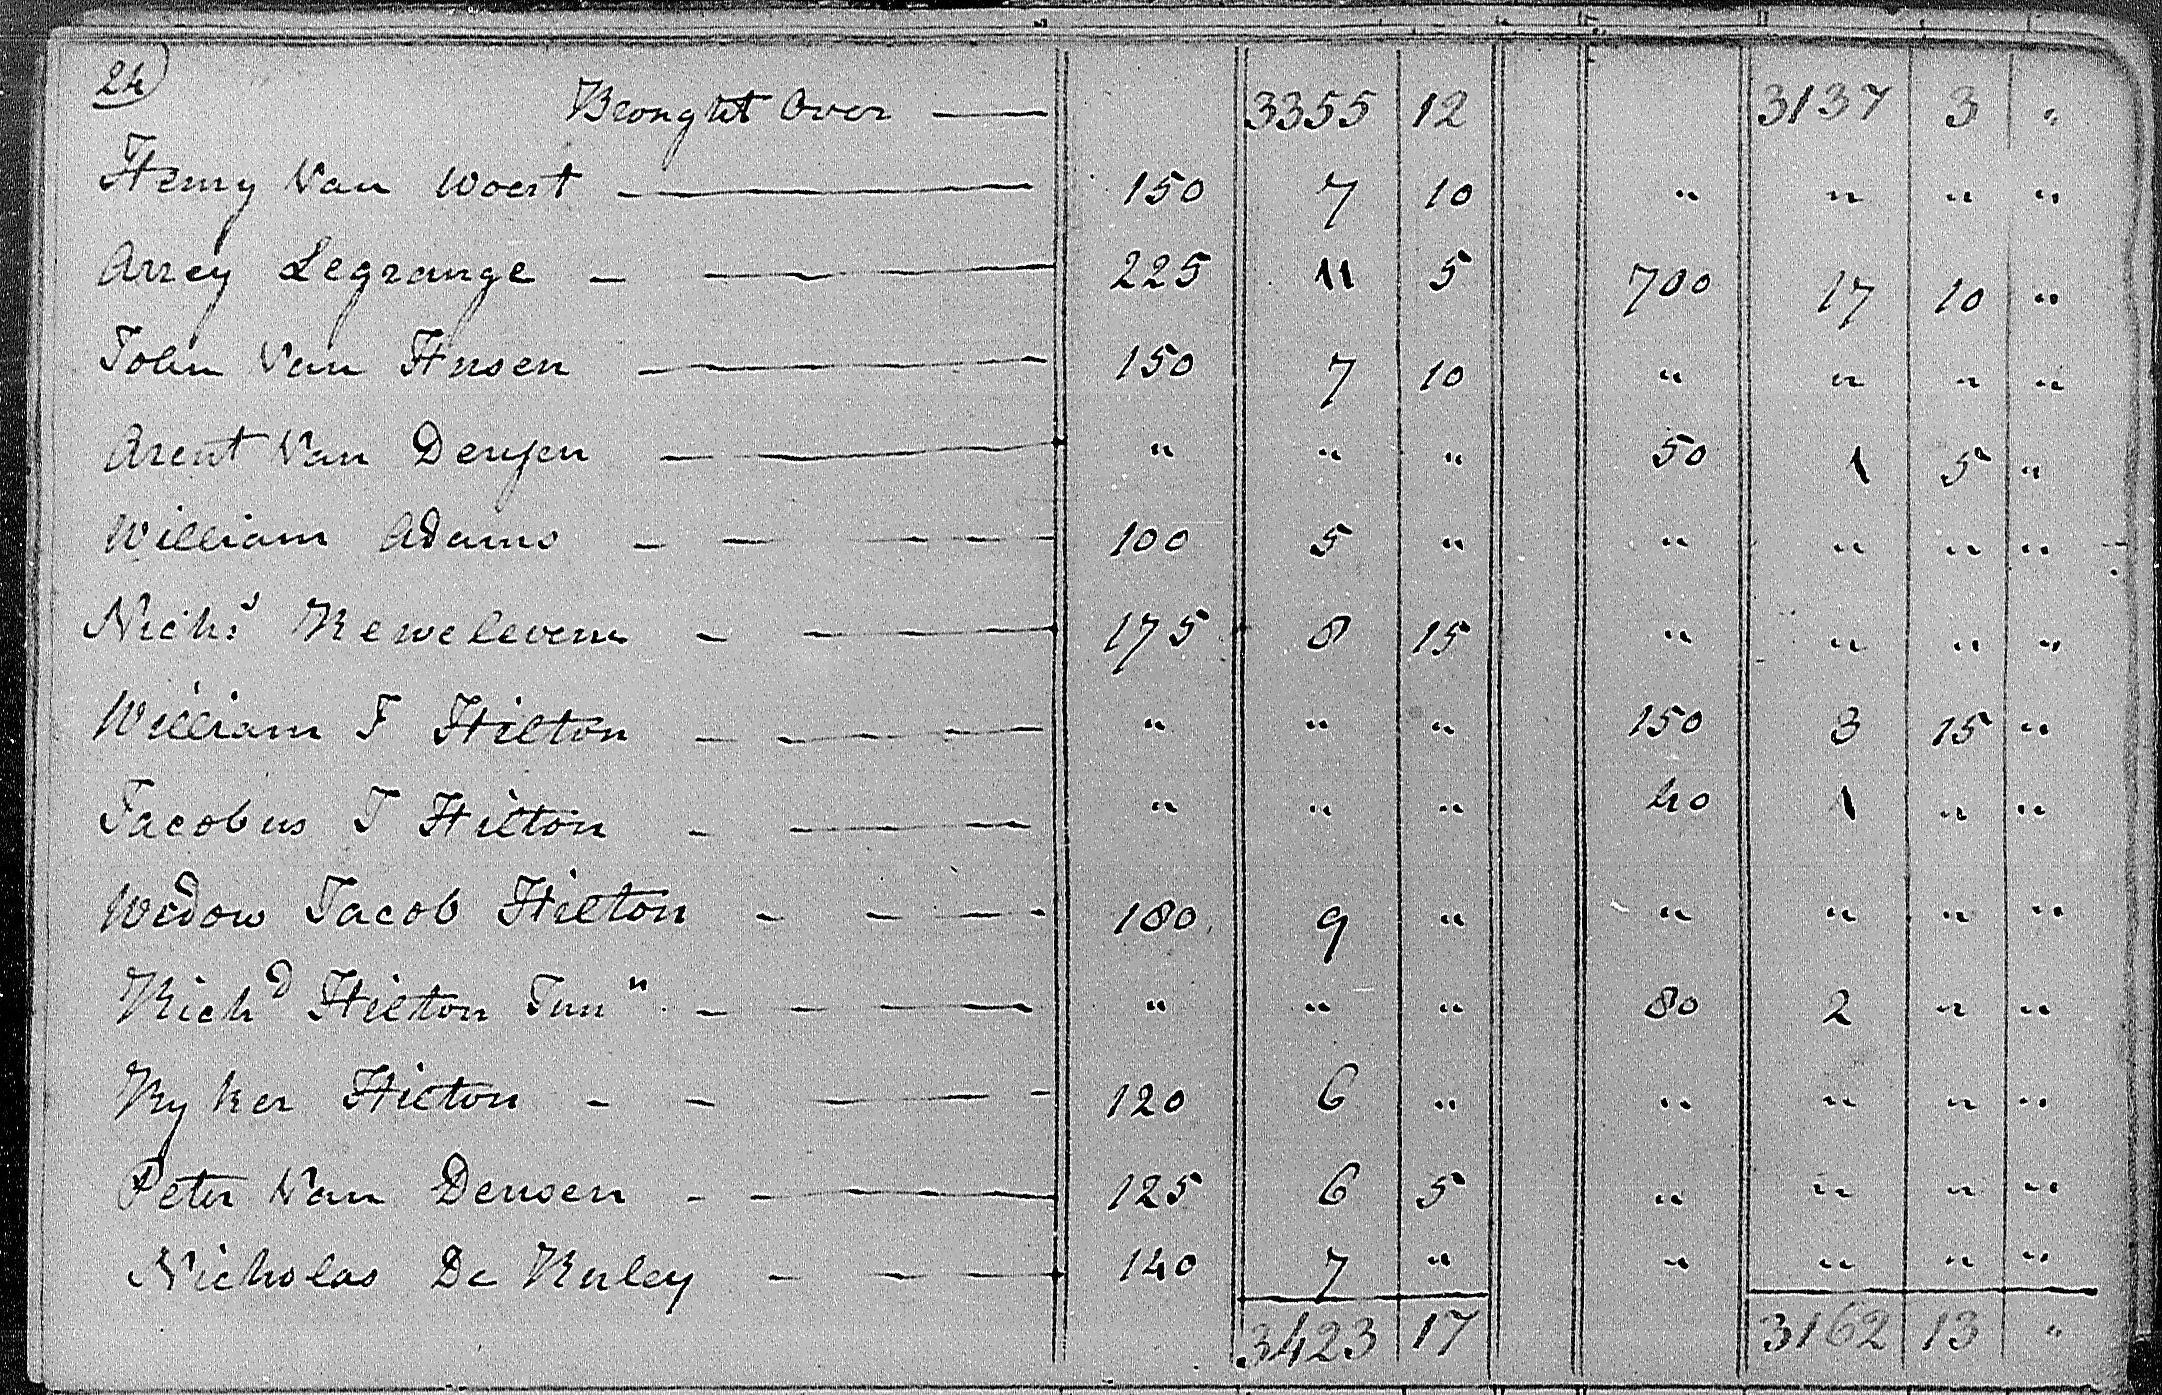 24
Brought Over — 3355 12 3137 3 "
Henry Van Woert — 150 7 10 " " " "
Arrey Legrange — 225 11 5 700 17 10 "
John Van Husen — 150 7 10 " " " "
Arent Van Deusen — " " " 50 1 5 "
William Adams — 100 5 " " " " "
Nichs — 175 8 15 " " " "
William J Hilton — " " " 150 3 15 "
Jacobus J Hilton — " " " 40 1 " "
Widow Jacob Hilton — 180 9 " " " " "
Richd Hilton Jun" — " " " 80 2 " "
Ryker Hilton — 120 6 " " " " "
Peter Van Deusen — 125 6 5 " " " "
Nicholas De — 140 7 " " " " "
3423 17 3162 13 "